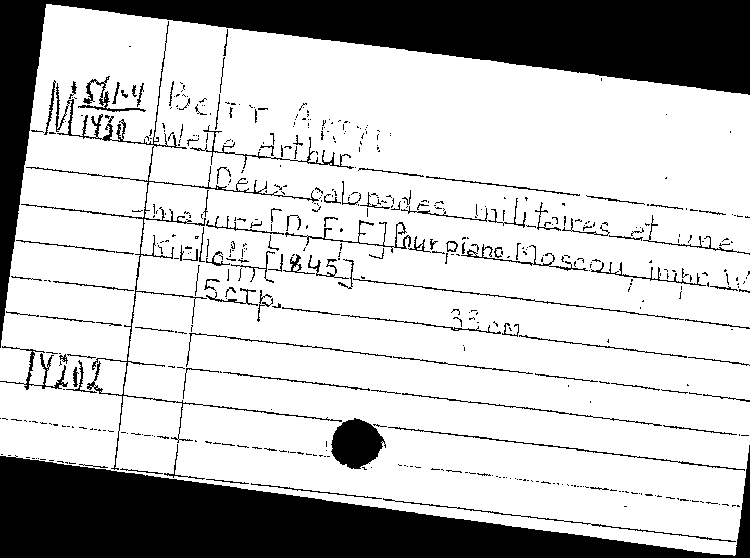 М 561-4
1430
Ветт Артур
de Wette, Arthur
Deux galopades militaires et une
-masure [D; F; F]. Pour piano. Moscou, impr. W
Kiriloff, [1845].
5 стр.
33 см
14202